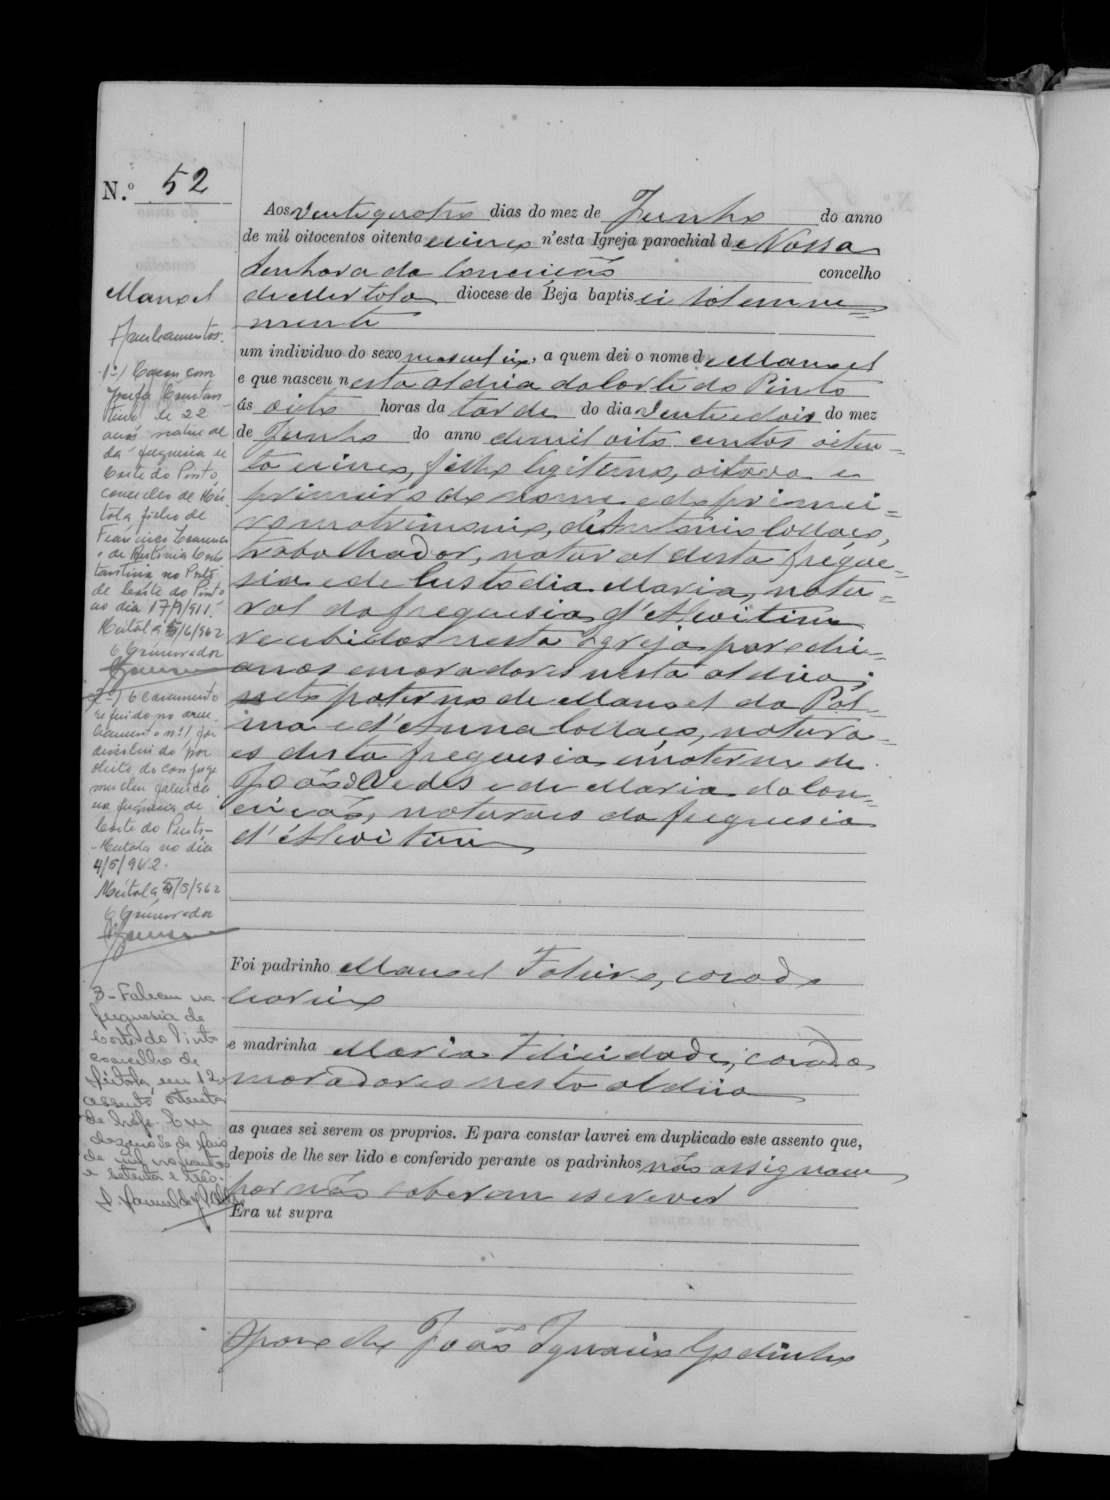 N.º 52
Manoel
Averbamentos.
1º) Casou com
Josefa Constan-
tina de 22
anos natural
da freguesia de
Corte do Pinto,
concelho de Mér-
tola, filha de
Francisco
e de Antonia Cons
tantina no Posto
de Corte do Pinto
ao dia 17/9/911.
Mértola 5/6/962
O Conservador
2º) O casamento
referido no aver-
bamento nº 1 foi
dissolvido por
óbito do conjuge
mulher falecida
na freguesia de
Corte do Pinto-
-Mértola no dia
4/5/962.
Mértola 5/5/962
O Conservador
3-Faleceu na
freguesia de
Corte do Pinto
concelho de
Mértola, em 12
assento oitenta
de hoje. Em
de Maio
de mil novecentos
e setenta e três.
Aos vente quatro dias do mez de Junho do anno
de mil oitocentos oitenta e cinco n'esta Igreja parochial de Nossa
Senhora da Conceição concelho
de Mertola diocese de Beja baptisei solemne=
mente
um individuo do sexo masculino, a quem dei o nome de Manoel
e que nasceu n esta aldeia da Corte do Pinto
ás oito horas da tarde do dia vente e dois do mez
de Junho do anno de mil oito centos oiten=
ta e cinco, filho legitimo, oitavo e
primeiro do nome e do primei=
ro matrimonio, de Antonio Collaço,
trabalhador, natural desta fregue=
sia e de Custodia Maria, natu=
ral da freguesia d'Alcoitim
recebidos nesta Igreja parochi=
anos e moradores nesta aldeia;
neto paterno de Manoel da Pal-
ma e d'Anna Collaço, natura-
es desta freguesia e materno de
João Guedes e de Maria da Con=
ceição, naturaes da freguesia
d'Alcoitim
Foi padrinho Manoel , casado
e madrinha Maria Felicidade, casada
moradores nesta aldeia
as quaes sei serem os proprios. E para constar lavrei em duplicado este assento que,
depois de lhe ser lido e conferido perante os padrinhos não assignam
por não saberem escrever
Era ut supra
O parocho João Ignacio Godinho